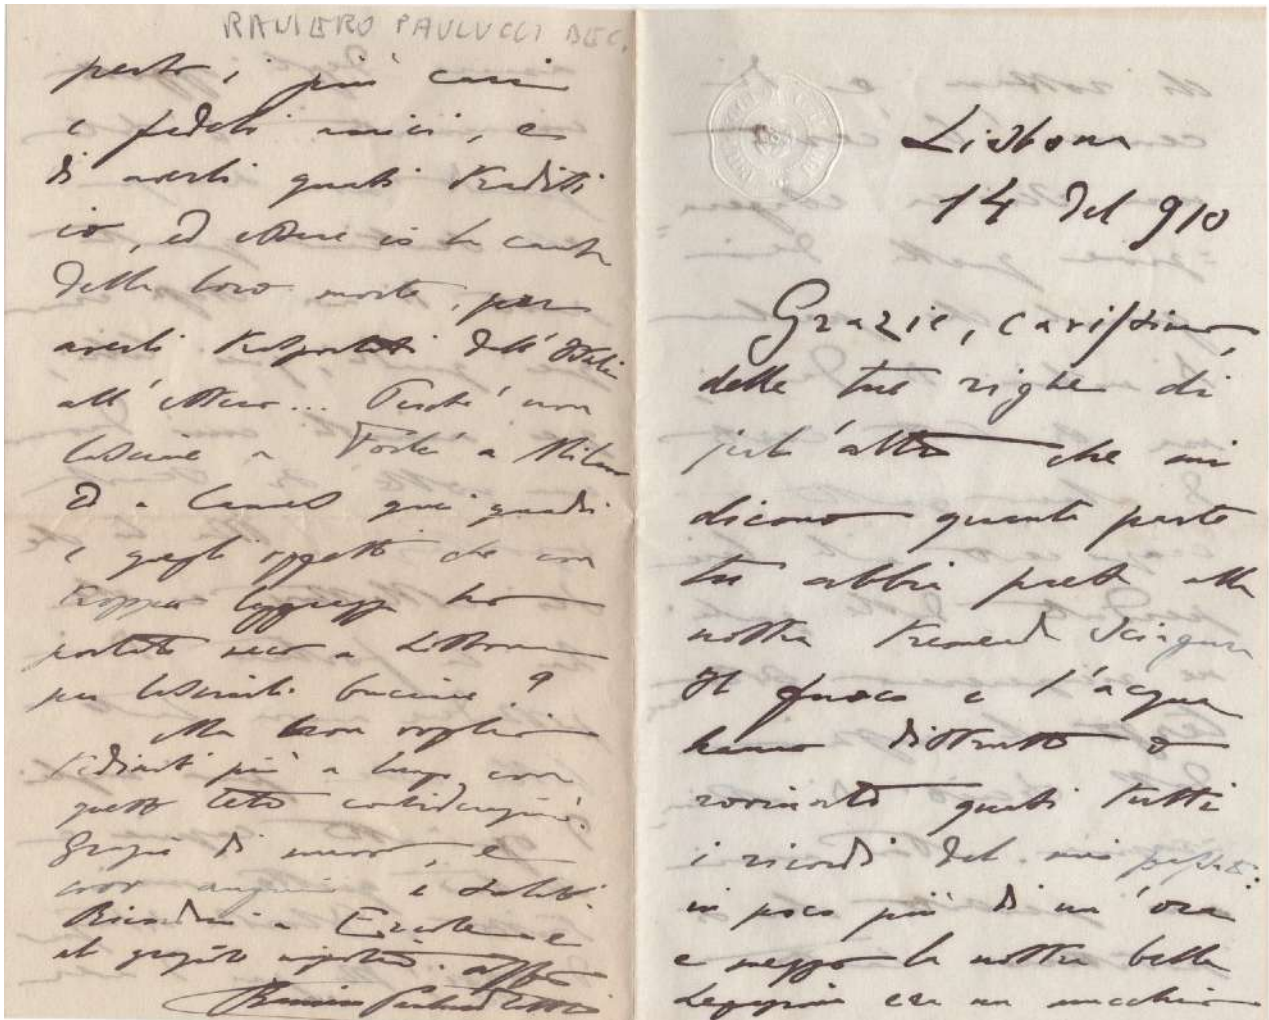 RANIERO PAULUCCI DEC.
perduto, i più cari
e fedeli amici, e
di averli quasi traditi
io, ed essere io la causa
della loro morte, per
averli trasportati dall'Italia
all'estero... Perché non
lasciare a Forlì a Milano
ed a quei quadri
e quegli oggetti che con
troppa leggerezza ho
portato meco a Lisbona
per lasciarli bruciare?
Ma non voglio
tediarti più a lungo con
queste tristi considerazioni.
Grazie di nuovo, e
auguri e saluti.
Ricordami a
il
Lisbona
14 Del 910
Grazie, carissimo,
delle tue righe di
jerl'altro che mi
dicono quanta parte
tu abbia preso alla
nostra tremenda sciagura
Il fuoco e l'acqua
hanno distrutto o
rovinato quasi tutti
i ricordi del mio passato:
in poco più di un'ora
e mezzo la nostra bella
Legazione era un mucchio